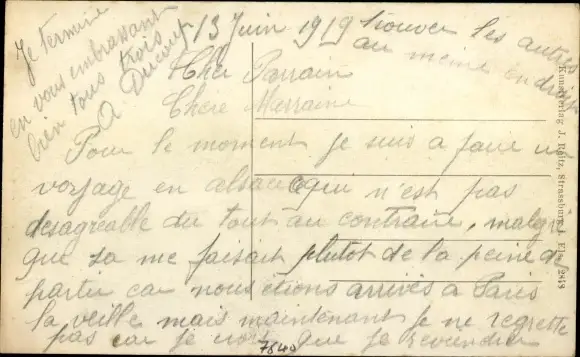 13 Juin 1919
Cher Parrain
Chere Marraine
Pour le moment je suis a faire un
voyage en alsace qui n'est pas
desagreable du tout au contraire, malgre
que sa me faisait plutot de la peine de
partir car nous etions arrivés a Paris
la veille mais maintenant je ne regrette
pas car je crois que je reviendrai
trouver les autres
au meme endroit
Je termine
en vous embrassant
bien tous trois
7640
Kunstverlag J. Roitz, Strassburg i. Els. 2848